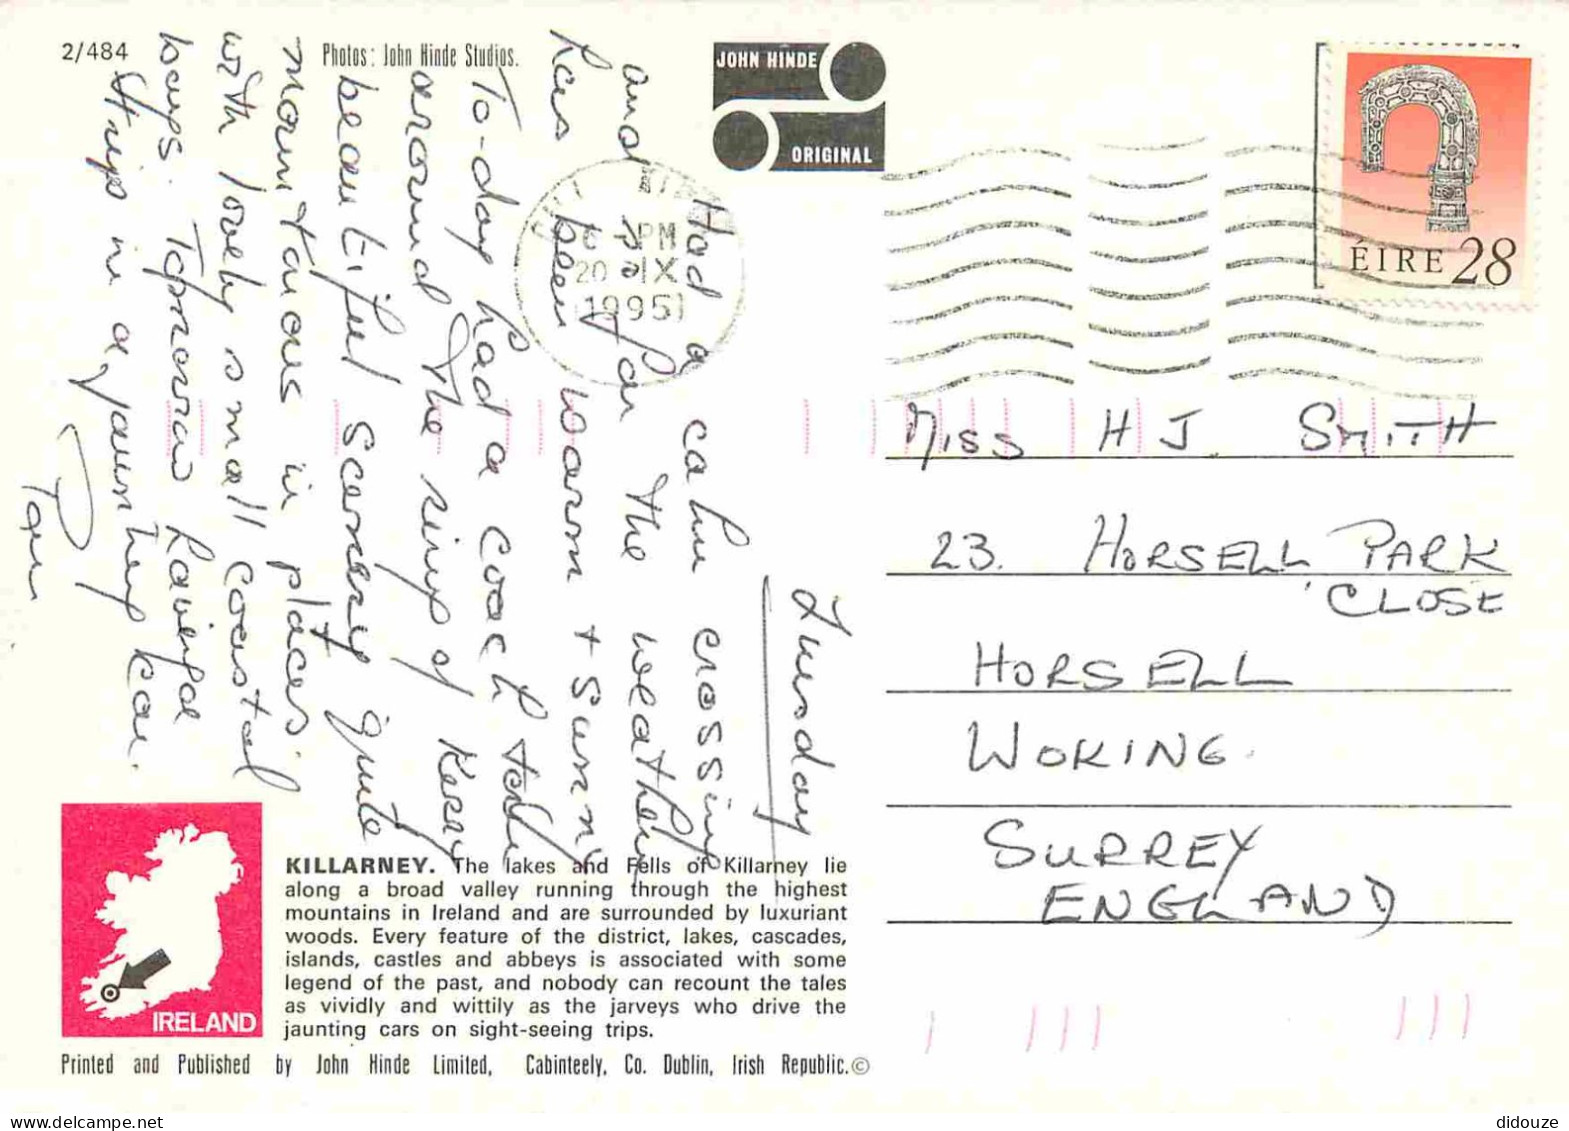 2/484
Photos: John Hinde Studios.
JOHN HINDE
ORIGINAL
ÉIRE 28
PM
20 IX
1995
Tuesday
Had a calm crossing
and so far the weather
has been warm + sunny
To-day had a coach
around the ring of Kerry
beautiful scenery quite
mountainous in places
with lovely small coastal
bays. Tomorrow having a
trip in a jaunting car.
Pam
MISS H J. SMITH
23. HORSELL PARK
CLOSE
HORSELL
WOKING.
SURREY
ENGLAND
KILLARNEY. The lakes and Fells of Killarney lie
along a broad valley running through the highest
mountains in Ireland and are surrounded by luxuriant
woods. Every feature of the district, lakes, cascades,
islands, castles and abbeys is associated with some
legend of the past, and nobody can recount the tales
as vividly and wittily as the jarveys who drive the
jaunting cars on sight-seeing trips.
IRELAND
Printed and Published by John Hinde Limited, Cabinteely, Co. Dublin, Irish Republic.©
didouze